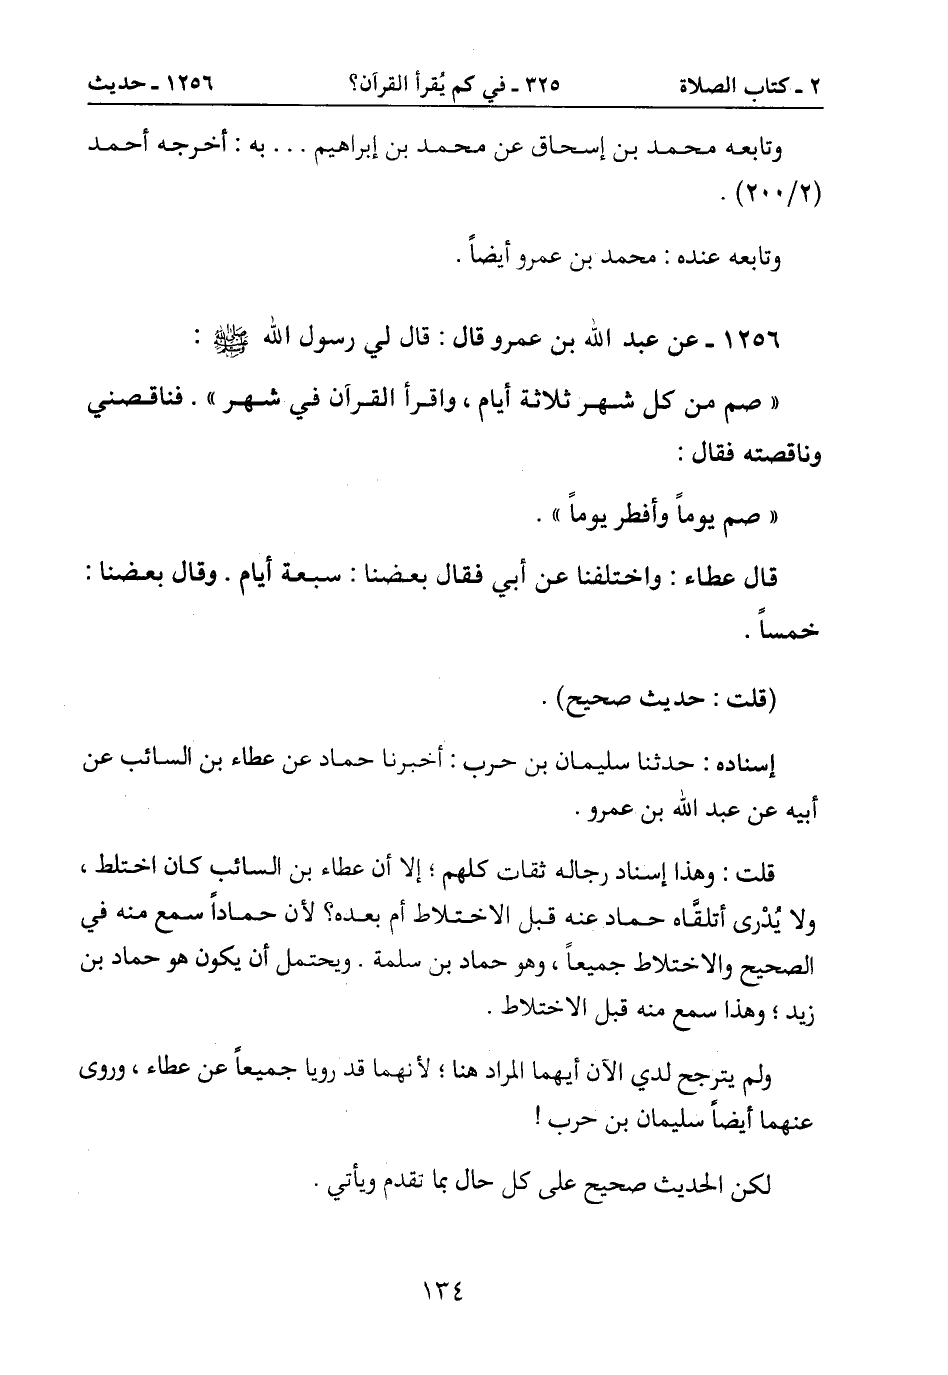 ٢ ـ كتاب الصلاة ٣٢٥ ـ في كم يُقرأ القرآن؟ ١٢٥٦ ـ حديث
وتابعه محمد بن إسحاق عن محمد بن إبراهيم ... به : أخرجه أحمد
(٢/٢٠٠) .
وتابعه عنده : محمد بن عمرو أيضاً .
١٢٥٦ ـ عن عبد الله بن عمرو قال : قال لي رسول الله ﷺ :
« صم من كل شهر ثلاثة أيام ، واقرأ القرآن في شهر » . فناقصني
وناقصته فقال :
« صم يوماً وأفطر يوماً » .
قال عطاء : واختلفنا عن أبي فقال بعضنا : سبعة أيام . وقال بعضنا :
خمساً .
(قلت : حديث صحيح) .
إسناده : حدثنا سليمان بن حرب : أخبرنا حماد عن عطاء بن السائب عن
أبيه عن عبد الله بن عمرو .
قلت : وهذا إسناد رجاله ثقات كلهم ؛ إلا أن عطاء بن السائب كان اختلط ،
ولا يُدْرى أتلقَّاه حماد عنه قبل الاختلاط أم بعده؟ لأن حماداً سمع منه في
الصحيح والاختلاط جميعاً ، وهو حماد بن سلمة . ويحتمل أن يكون هو حماد بن
زيد ؛ وهذا سمع منه قبل الاختلاط .
ولم يترجح لدي الآن أيهما المراد هنا ؛ لأنهما قد رويا جميعاً عن عطاء ، وروى
عنهما أيضاً سليمان بن حرب !
لكن الحديث صحيح على كل حال بما تقدم ويأتي .
١٣٤